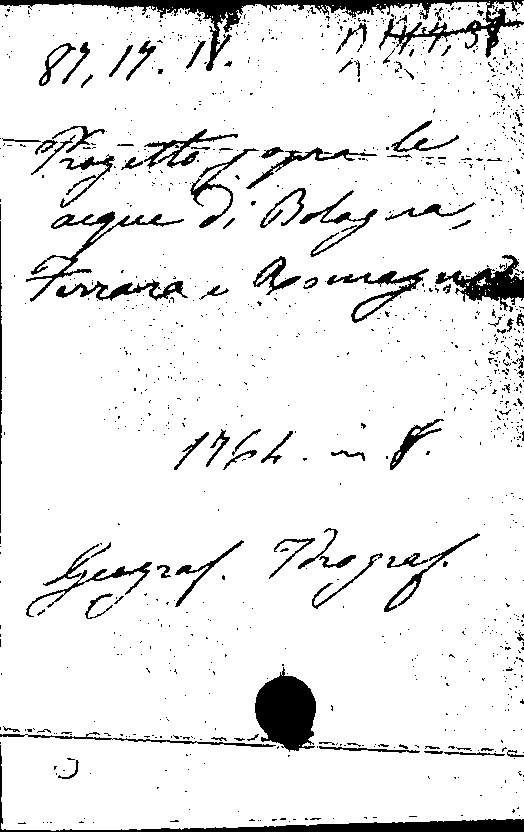 87, 17. IV.
Progetto sopra le
acque di Bologna,
Ferrara e Romagna
1764. in 8.
Geograf. Idrograf.